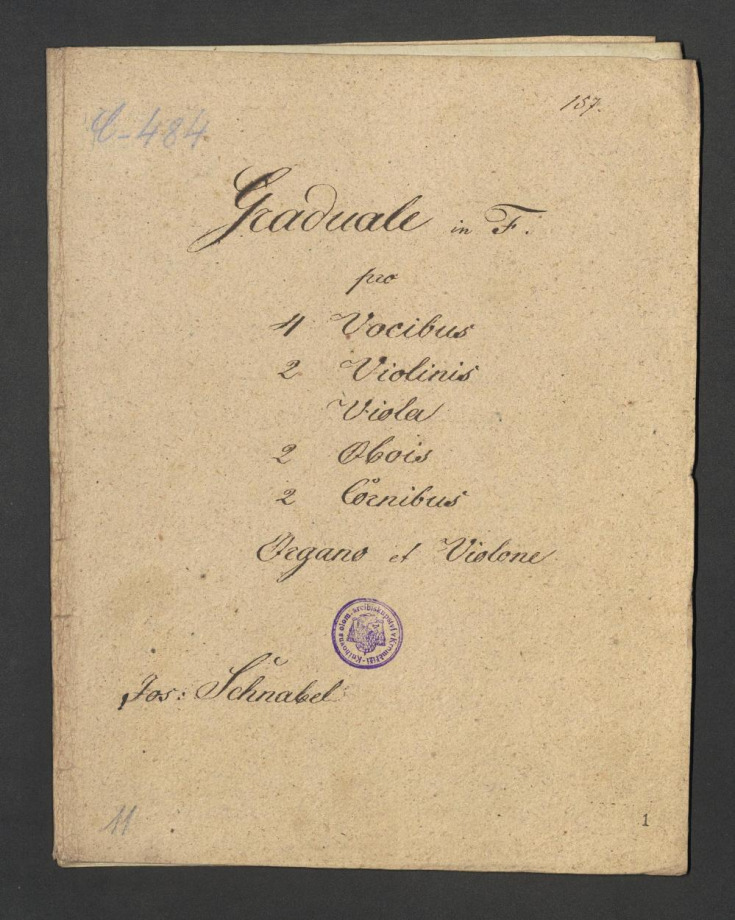 157.
C-484
Graduale in F.
pro
4 Vocibus
2 Violinis
Viola
2 Obois
2 Cornibus
Organo et Violone
Knihovna olom. arcibiskupství v Kroměříži
Jos: Schnabel
11
1